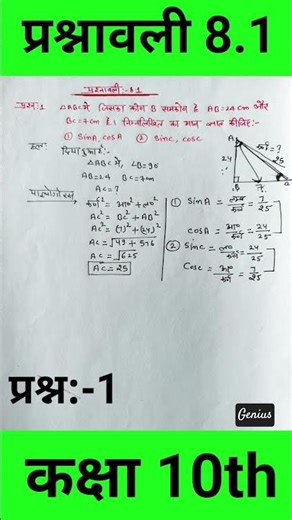 प्रश्नावली 8.1
प्रश्नावली:-8.1
प्रश्न:1 △ABC में जिसका कोण B समकोण है AB=24cm और
BC=7cm है। निम्नलिखित का मान ज्ञात कीजिए:-
① SinA, cosA ② sinc, cosc
हल दिया हुआ है:-
△ABC में, ∠B=90
AB=24 BC=7cm
AC=?
पाइथागोरस
कर्ण²=आ०²+ल०²
AC²=BC²+AB²
AC²=(7)²+(24)²
AC=√49+576
AC=√625
AC=25
A
कर्ण=?
24
B
7
C
① SinA=लम्ब/कर्ण=7/25
cosA=आ०/कर्ण=24/25
② Sinc=ल०/कर्ण=24/25
Cosc=आ०/कर्ण=7/25
प्रश्न:-1
Genius
कक्षा 10th